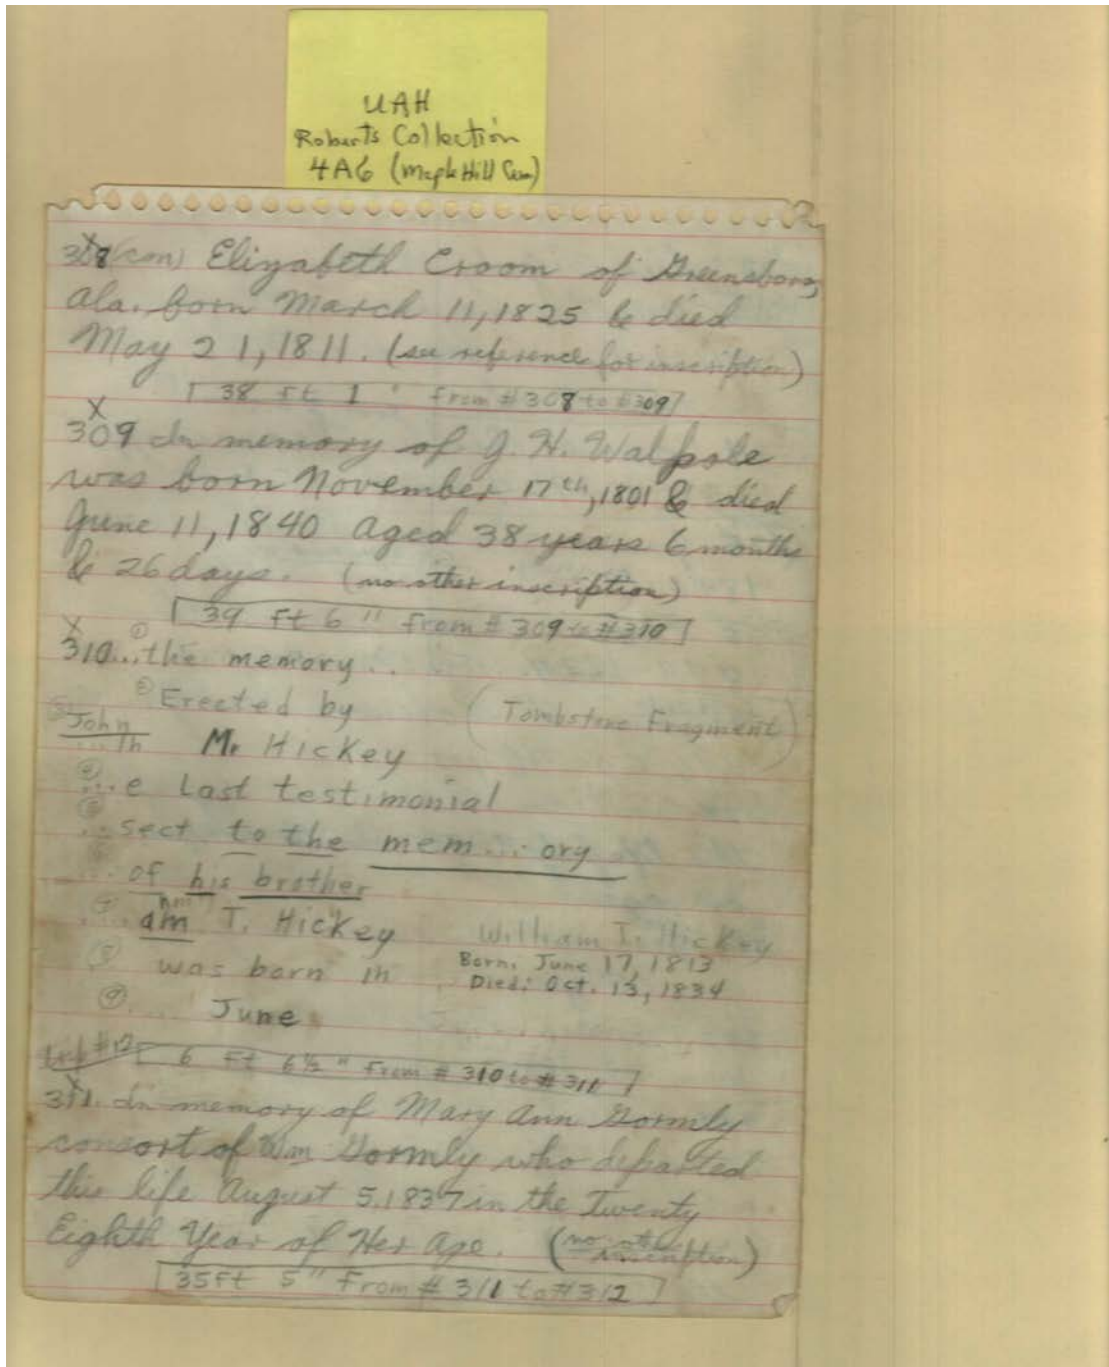 UAH
Roberts Collection
4A6 (Maple Hill Cem)
308 (con) Elizabeth Croom of Greensboro,
Ala. born March 11, 1825 & died
May 21, 1811. (see reference for inscription)
[38 ft 1 " from # 308 to # 309]
X
309 In memory of G. H. Walpole
was born November 17th, 1801 & died
June 11, 1840 aged 38 years 6 months
& 26 days. (no other inscription)
[39 ft 6 " from # 309 to # 310]
X
310 ① ...the memory...
② Erected by (Tombstone Fragment)
③ John
...th M. Hickey
④ ...e last testimonial
⑤ ...sect to the mem...ory
...of his brother
⑦ ...am T. Hickey William T. Hickey
⑧ was born in Born, June 17, 1813
Died: Oct. 13, 1834
⑨ ... June
#12 [6 ft 6½ " from # 310 to # 311]
X
311. In memory of Mary Ann Gormly
consort of Wm Gormly who departed
this life August 5, 1837 in the Twenty
Eighth Year of Her Age. (no other
inscription)
[35 ft 5 " from # 311 to # 312]